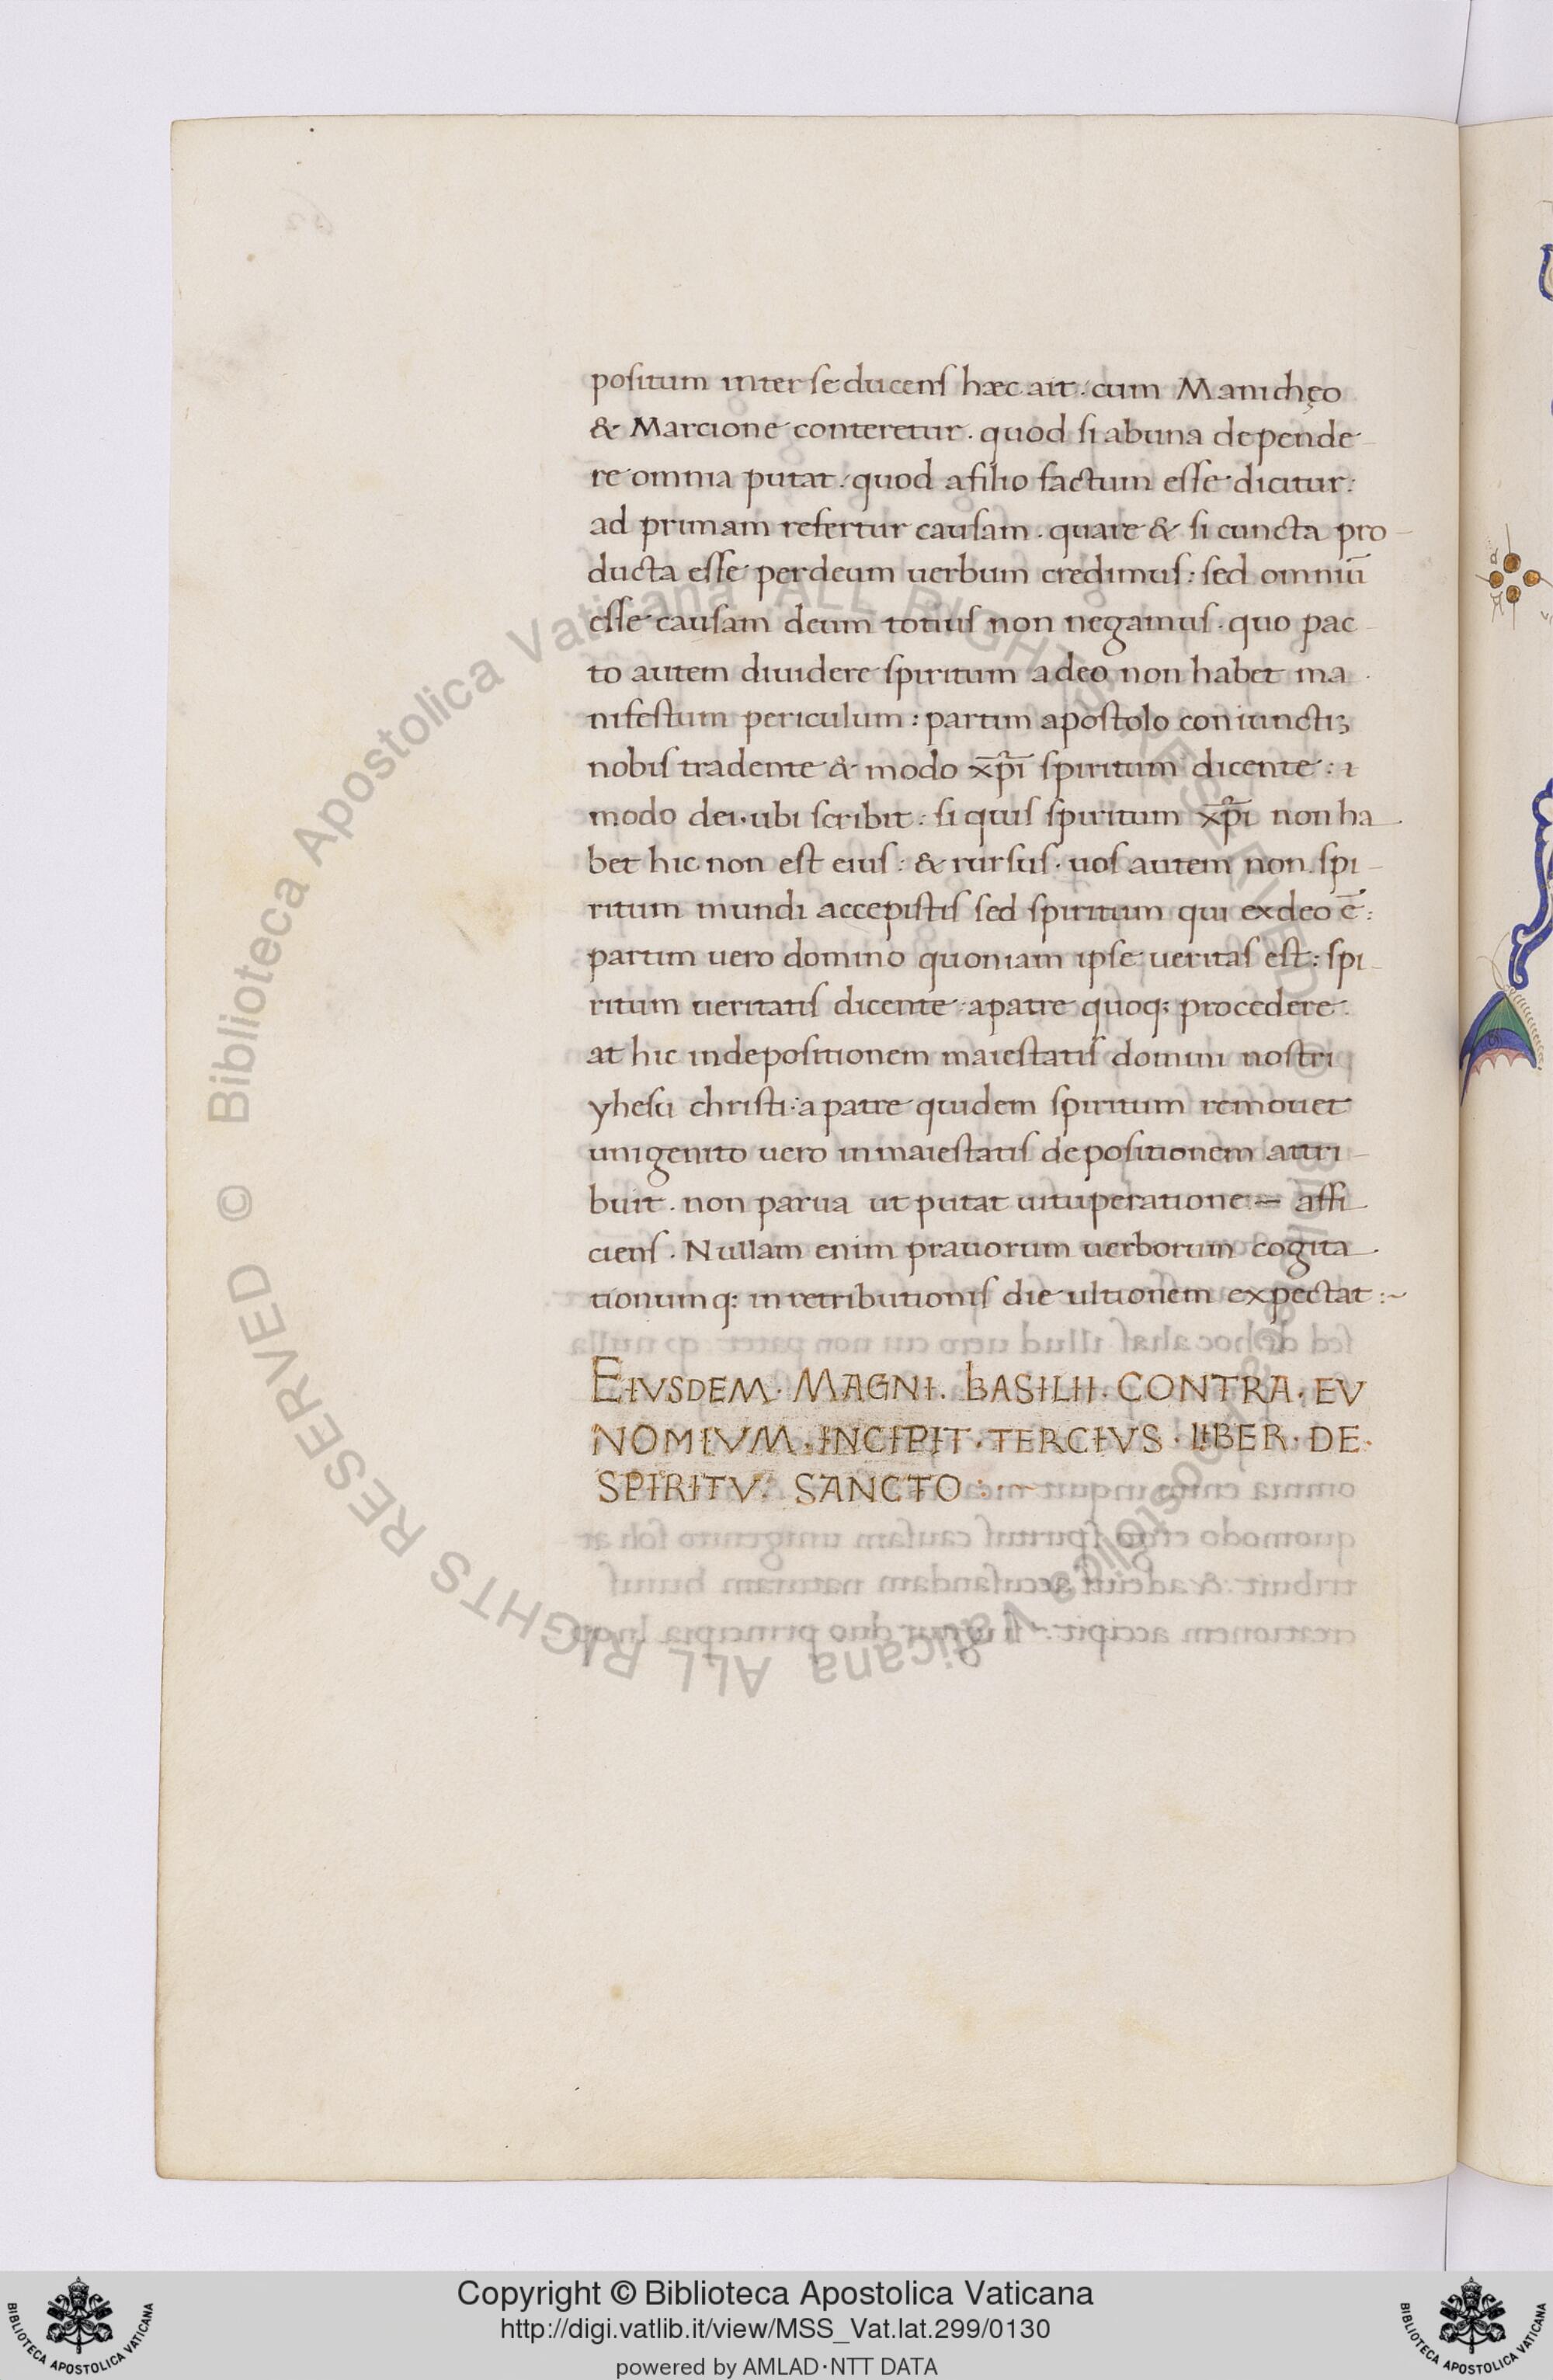 positum inter se ducens hæc ait. cum Manichęo
& Marcione conteretur. quod si ab una depende
re omnia putat. quod a filio factum esse dicitur:
ad primam refertur causam. quare & si cuncta pro
ducta esse per deum uerbum credimus: sed omniū
esse causam deum totius non negamus. quo pac
to autem diuidere spiritum a deo non habet ma
nifestum periculum: partim apostolo coniunctiʒ
nobis tradente & modo xp̄i spiritum dicente:
modo dei. ubi scribit: si quis spiritum xp̄i non ha
bet hic non est eius: & rursus. uos autem non spi
ritum mundi accepistis sed spiritum qui ex deo ē:
partim uero domino quoniam ipse ueritas est: spi
ritum ueritatis dicente. a patre quoq; procedere.
at hic in depositionem maiestatis domini nostri
yhesu christi: a patre quidem spiritum remouet
unigenito uero in maiestatis depositionem attri
buit. non parua ut putat uituperatione affi
ciens. Nullam enim prauorum uerborum cogita
tionumq: in retributionis die ultionem expectat:~
EIVSDEM. MAGNI. BASILII. CONTRA. EV
NOMIVM. INCIPIT. TERCIVS. LIBER. DE.
SPIRITV. SANCTO:~
© Biblioteca Apostolica Vaticana ALL RIGHTS RESERVED
Copyright © Biblioteca Apostolica Vaticana
http://digi.vatlib.it/view/MSS_Vat.lat.299/0130
powered by AMLAD·NTT DATA
BIBLIOTECA APOSTOLICA VATICANA
BIBLIOTECA APOSTOLICA VATICANA